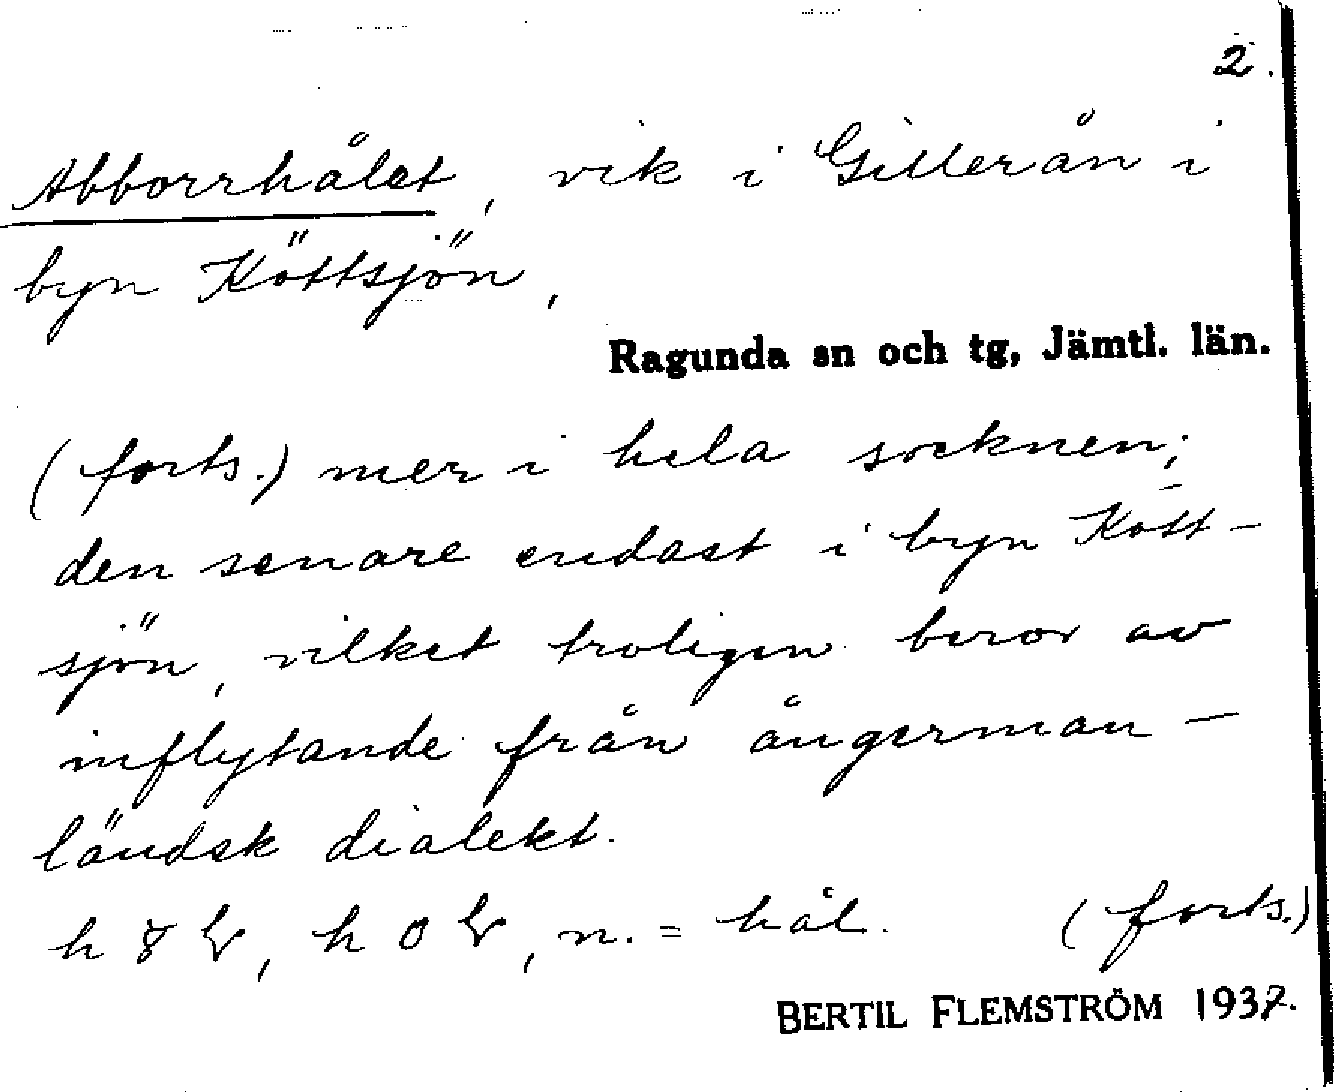 2.
Abborrhålet, vik i Gillerån i
byn Köttsjön,
Ragunda sn och tg, Jämtl. län.
(forts.) mer i hela socknen;
den senare endast i byn Kött-
sjön, vilket troligen beror av
inflytande från ångerman-
ländsk dialekt.
n. = hål. (forts.)
BERTIL FLEMSTRÖM 1937.